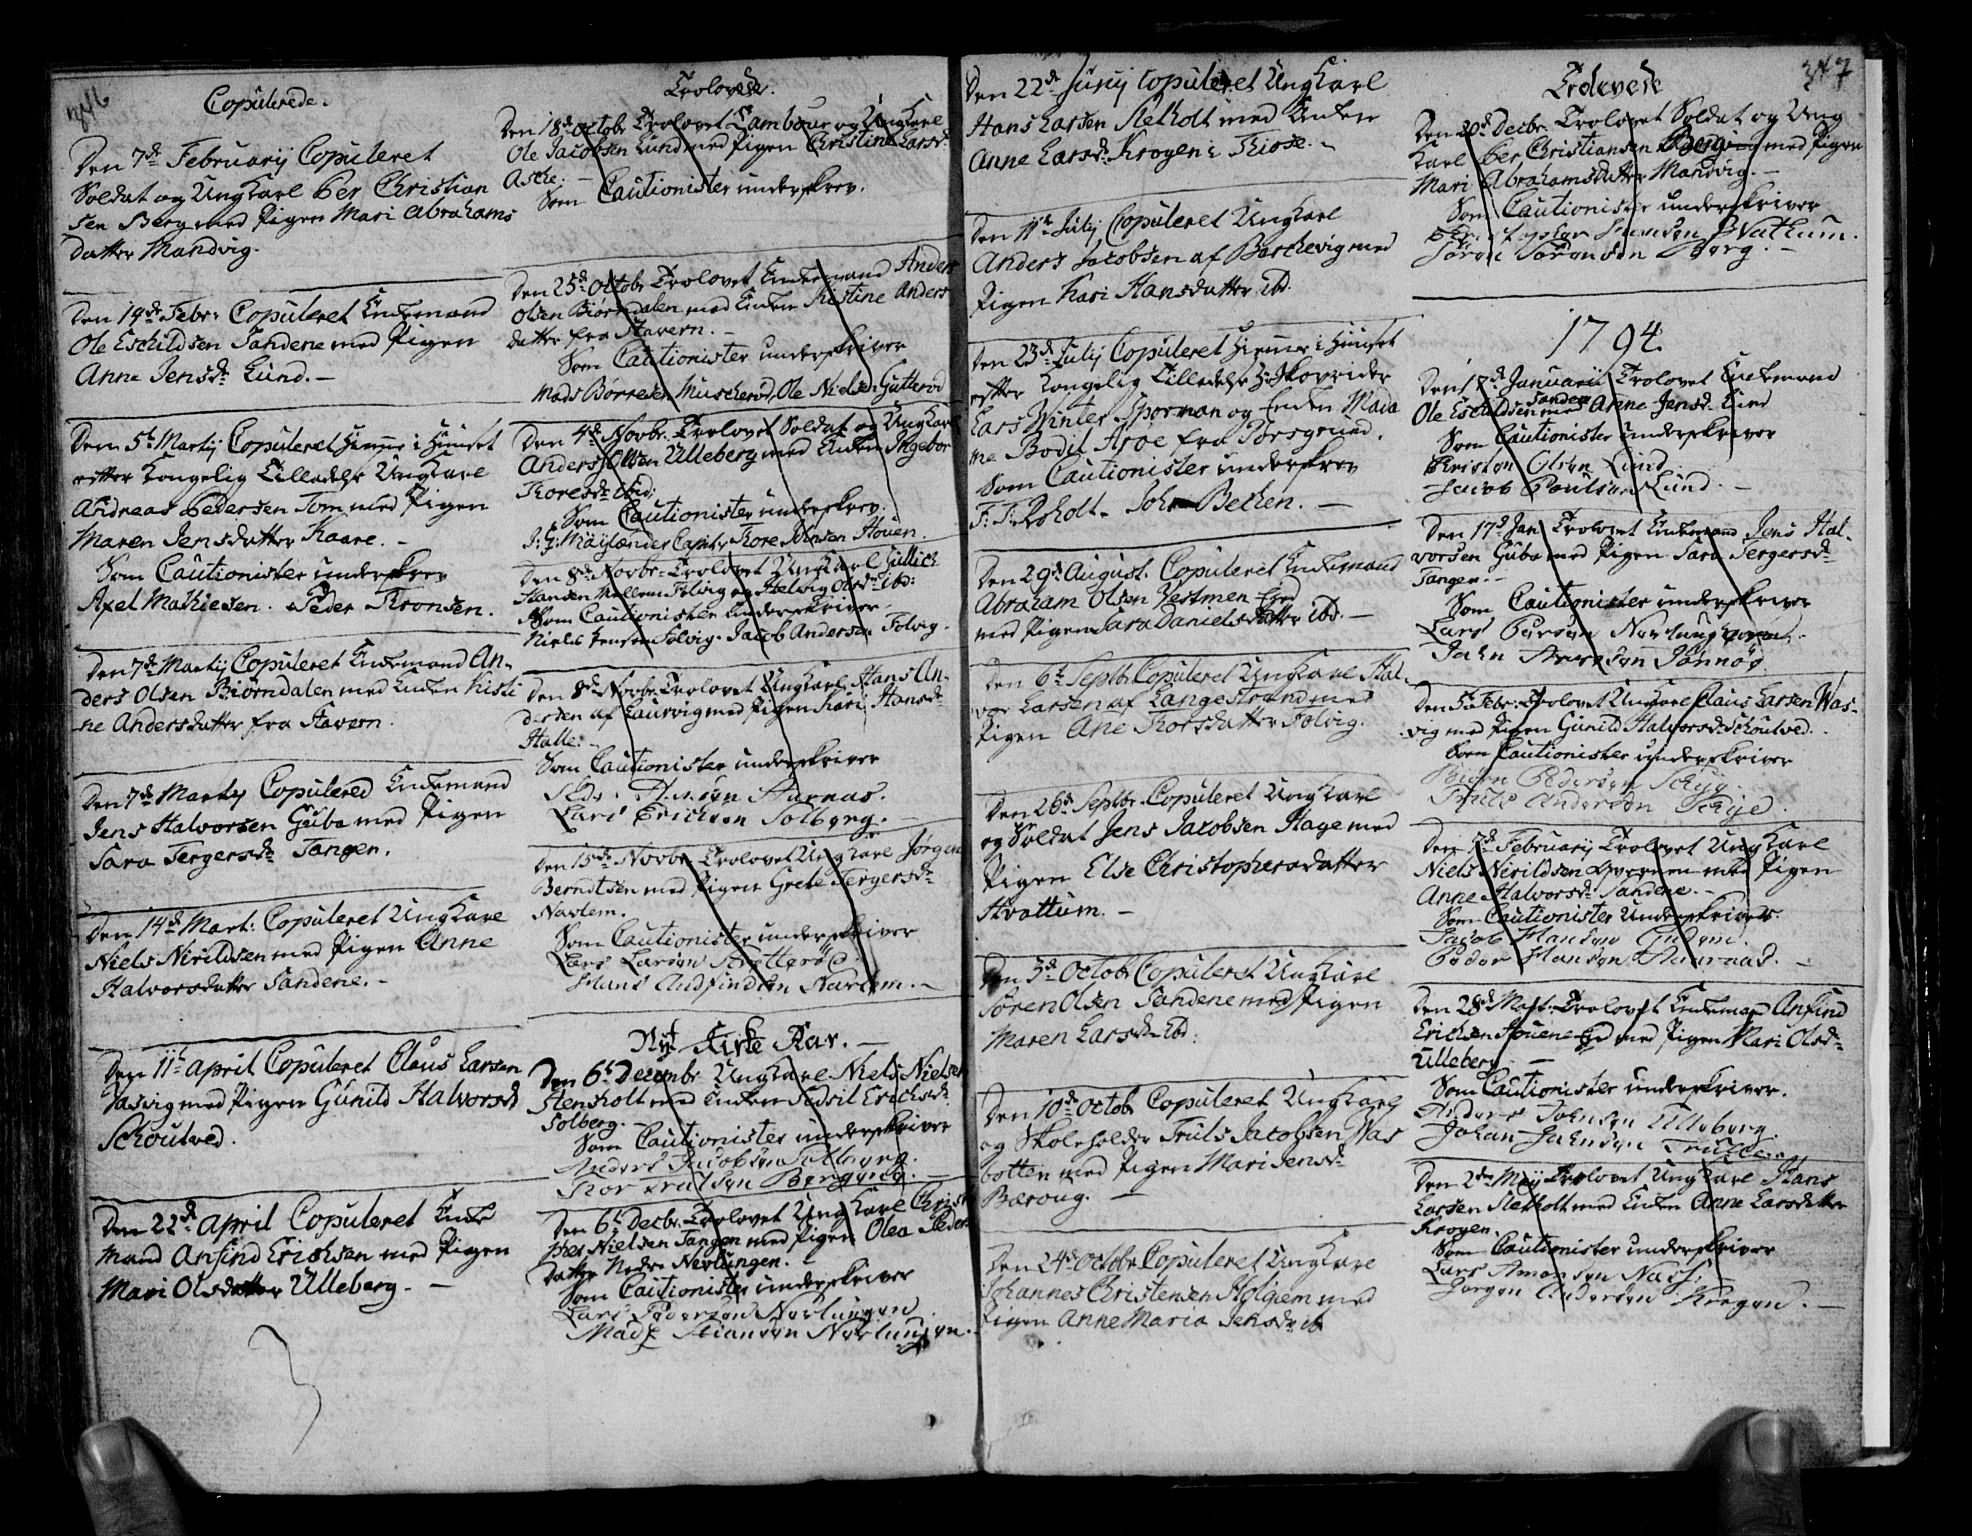 346
Copulerede.
Den 7de Februarij Copuleret
Soldat og UngKarl Per Christian
sen Berg med Pigen Mari Abrahams
datter Mandvig.
Den 19de Febr: Copuleret Enkemand
Ole Eschildsen Sandene med Pigen
Anne Jensdr Lund. -
Den 5te Martij Copuleret Hjemme i Huuset
efter Kongelig Tilladelse UngKarl
Andreas Pedersen Tom med Pigen
Maren Jensdatter Kaare. -
Som Cautionister underskrev
Axel Mathiesen. Peder Tronsen.
Den 7de Martij Copuleret Enkemand An-
ders Olsen Biørndalen med Enken Kisti
ne Andersdatter fra Stavern.
Den 7de Martij Copulered Enkemand
Jens Halvorsen Guba med Pigen
Sara Tergersdr Tangen.
Den 14de Mart: Copuleret UngKarl
Niels Nirildsen med Pigen Anne
Halvorsdatter Sandene. -
Den 11te April Copuleret Claus Larsen
Vasvig med Pigen Gunild Halvorsd
Schoutved.
Den 22de April Copuleret Enke
mand Anfind Erichsen med Pigen
Mari Olsdatter Ulleberg. -
Trolovede.
Den 18de Octobr Trolovet Tambour og UngKarl
Ole Jacobsen Lund med Pigen Christine Larsdr
Asche. -
Som Cautionister underskrev.
Den 25de Octobr Trolovet Enkemand Anders
Olsen Biørndalen med Enken Kistine Anders
datter fra Stavern. -
Som Cautionister underskriver
Mads Børresen Muscherød, Ole Nielsen Gutterød
Den 4de Novbr. Trolovet Soldat og UngKarl
Anders Olsen Ulleberg med Enken Ingebor
Thoresdr ibid:
Som Cautionister underskrev.
J: G: Maÿlænder Capit: Thore Johnsen Houen.
Den 8de Novbr. Trolovet UngKarl Gullich
Hansen Mellem Folvig og Helvig Olsdr ibd:
Som Cautionister underskriver.
Niels Jensen Folvig. Jacob Andersen Folvig.
Den 8de Novbr. Trolovet UngKarl Hans An-
dersen af Laurvig med Pigen Kari Hansdr
Halle. -
Som Cautionister underskriver
Peder Hansøn Aurnas.
Lars Erichsen Solberg. -
Den 15de Novbr. Trolovet UngKarl Jørgen
Berntsen med Pigen Grete Tergersdr
Navlem.
Som Cautionister underskriver
Lars Larsøn
Hans Audfindsen Navlem. -
Nyt Kirke Aar. -
Den 6te Decembr UngKarl Niels Nielsen
Stensholt med Enken Sidsil Erichsdr
Solberg. -
Som Cautionister underskriver
Anders Jacobsen Solberg.
Thor Trulsen Bergvig. -
Den 6te Decbr. Trolovet UngKarl Christo
pher Nielsen Tangen med Pigen Olea Peders
datter Nedre Nevlungen.
Som Cautionister underskriver
Lars Pedersøn Nevlungen
Mads Stiansøn Nevlungen.
Den 22de Junij Copuleret UngKarl
Hans Larsen Sletholt med Enken
Anne Larsdr Krogen i Tiose. -
Den 11te Julij Copuleret UngKarl
Anders Jacobsen af Barchevig med
Pigen Kari Hansdatter ibd.
Den 23de Julij Copuleret Hjemme i Huuset
efter Kongelig Tilladelse Hr Skovrider
Lars Winter Sporman og Enken Mada
me Bodil Aroe fra Porsgrund.
Som Cautionister underskrev
F: T: Asholdt. John Bechen. -
Den 29de August. Copuleret Enkemand
Abraham Olsen Vestmen Eje
med Pigen Sara Danielsdatter ibd. -
Den 6te Septbr Copuleret UngKarl Hal-
vor Larsen af Langestrand med
Pigen Ane Thorsdatter Folvig.
Den 26de Septbr. Copuleret UngKarl
og Soldat Jens Jacobsen Hage med
Pigen Else Christophersdatter
Hvattum. -
Den 3de Octobr Copuleret UngKarl
Søren Olsen Sandene med Pigen
Maren Larsdr Ibd:
Den 10de Octobr Copuleret UngKarl
og Skoleholder Truls Jacobsen Vas
botten med Pigen Mari Jensdr
Bæroug. -
Den 24de Octobr Copuleret UngKarl
Johannes Christensen Helgiem med
Pigen Anne Maria Jensdr ib
347
Trolovede
Den 20de Decbr. Trolovet Soldat og Ung
Karl Per Christiansen Berg med Pigen
Mari Abrahamsdatter Mandvig. -
Som Cautionister underskriver
Christopher Hansen Hvattum.
Søren Sørensen Berg. -
1794.
Den 17de Januarii Trolovet Enkemand
Ole Eschildsen Sandene med Anne Jensdr Lund
Som Cautionister underskriver
Kristen Olsen Lund
Jacob Poulsøn Lund. -
Den 17de Jan: Trolovet Enkemand Jens Hal-
vorsen Guba med Pigen Sara Tergersdr
Tangen. -
Som Cautionister underskriver
Lars Pedersøn Nevlunghaven.
Jahn Arresøn Pønnøe
Den 5te Febr: Trolovet UngKarl Claus Larsen Was-
vig med Pigen Gunild Halvorsdr Schoutved. -
Som Cautionister underskriver
Biørn Pedersøn Schije
Truls Andersøn Schije.
Den 7de Februarij Trolovet UngKarl
Niels Nirildsen med Pigen
Anne Halvorsdr Sandene. -
Som Cautionister Underskriver.
Jacob Hansøn
Peder Hansøn Aurnas. -
Den 28de Mart. Trolovet Enkemand Anfind
Erichsen Houene Eje med Pigen Mari Olsdr
Ulleberg. -
Som Cautionister underskriver.
Anders Johnsen Ulleberg.
Johan Jahnsøn
Den 2den Maij Trolovet UngKarl Hans
Larsen Sletholt med Enken Anne Larsdatter
Krogen.
Som Cautionister underskriver
Lars Amonsøn Nass.
Jørgen Andersøn Krogen. -